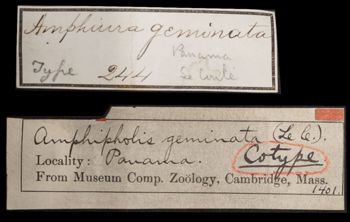 Amphiura geminata
Panama
Type 244 Le Conte
Amphipholis geminata (Le C.).
Locality: Panama. Cotype
From Museum Comp. Zoölogy, Cambridge, Mass.
1401.